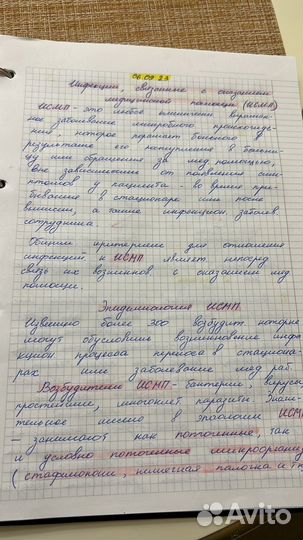 06.09.23
Инфекции, связанные с оказанием
медицинской помощи (ИСМП)
ИСМП - это любое клинически выражен-
ное заболевание микробного происхожде-
ния, которое поражает больного в
результате его поступления в больни-
цу или обращения за мед помощью,
вне зависимости от появления сим-
птомов у пациента - во время пре-
бывания в стационаре или после
выписки, а также инфекцион. заболев.
сотрудника.
Общим критерием для отнесения
инфекций к ИСМП является непосред
связь их возникнов с оказанием мед
помощи.
Эпидемиология ИСМП
Известно более 300 возбудит. которые
могут обусловить возникновение инфек
кцион процесса переноса в стациона-
рах или заболевание мед раб.
Возбудители ИСМП - бактерии, вирусы,
простейшие, многоклет. паразиты. Значи-
тельное место в этиологии ИСМП
- занимают как патогенные, так
и условно патогенные микроорганиз
(стафилококки, кишечная палочка и т.п
Avito